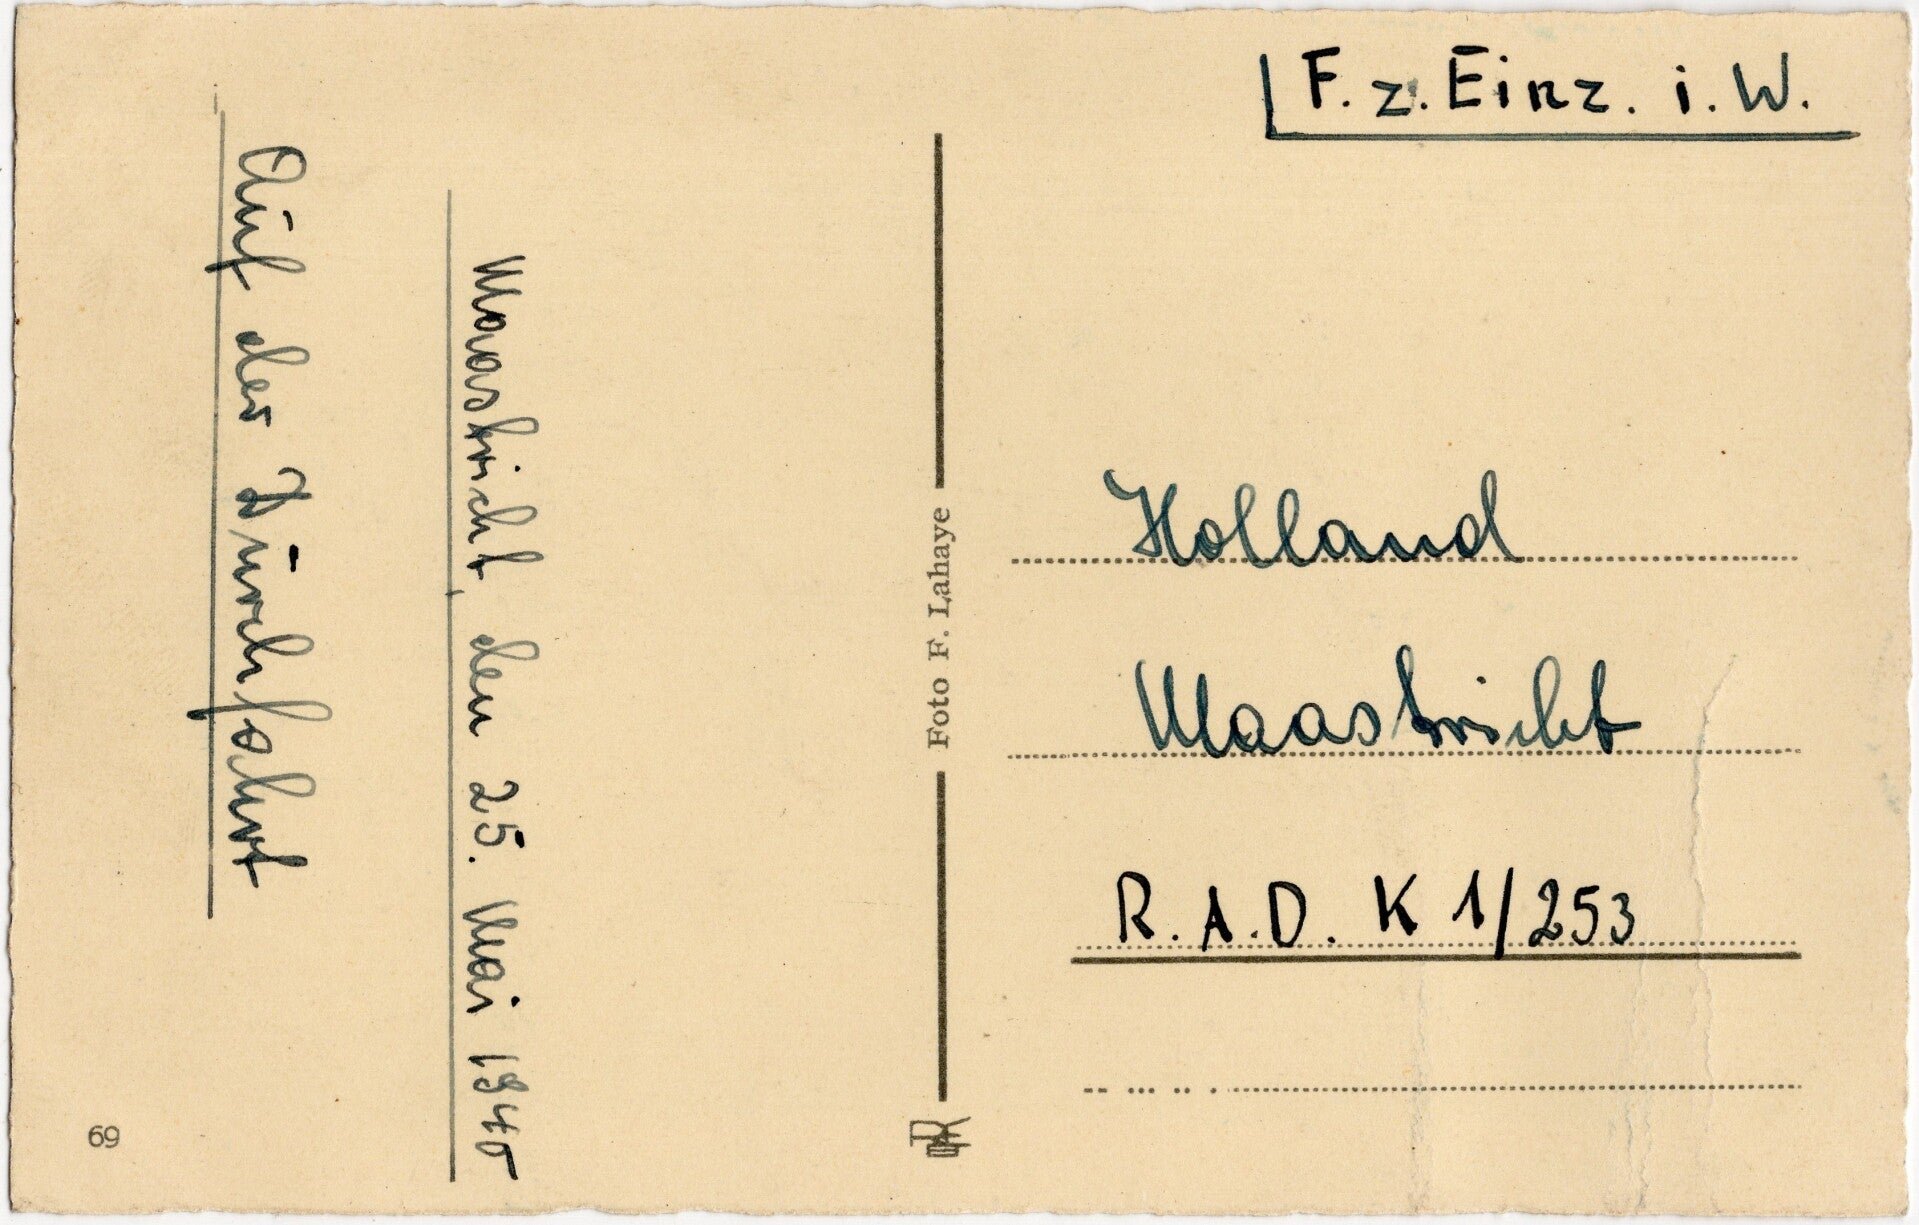 F. z. Einz. i. W.
Auf der Durchfahrt
Maastricht, den 25. Mai 1940
Foto F. Lahaye
Holland
Maastricht
R.A.D. K 1/253
69